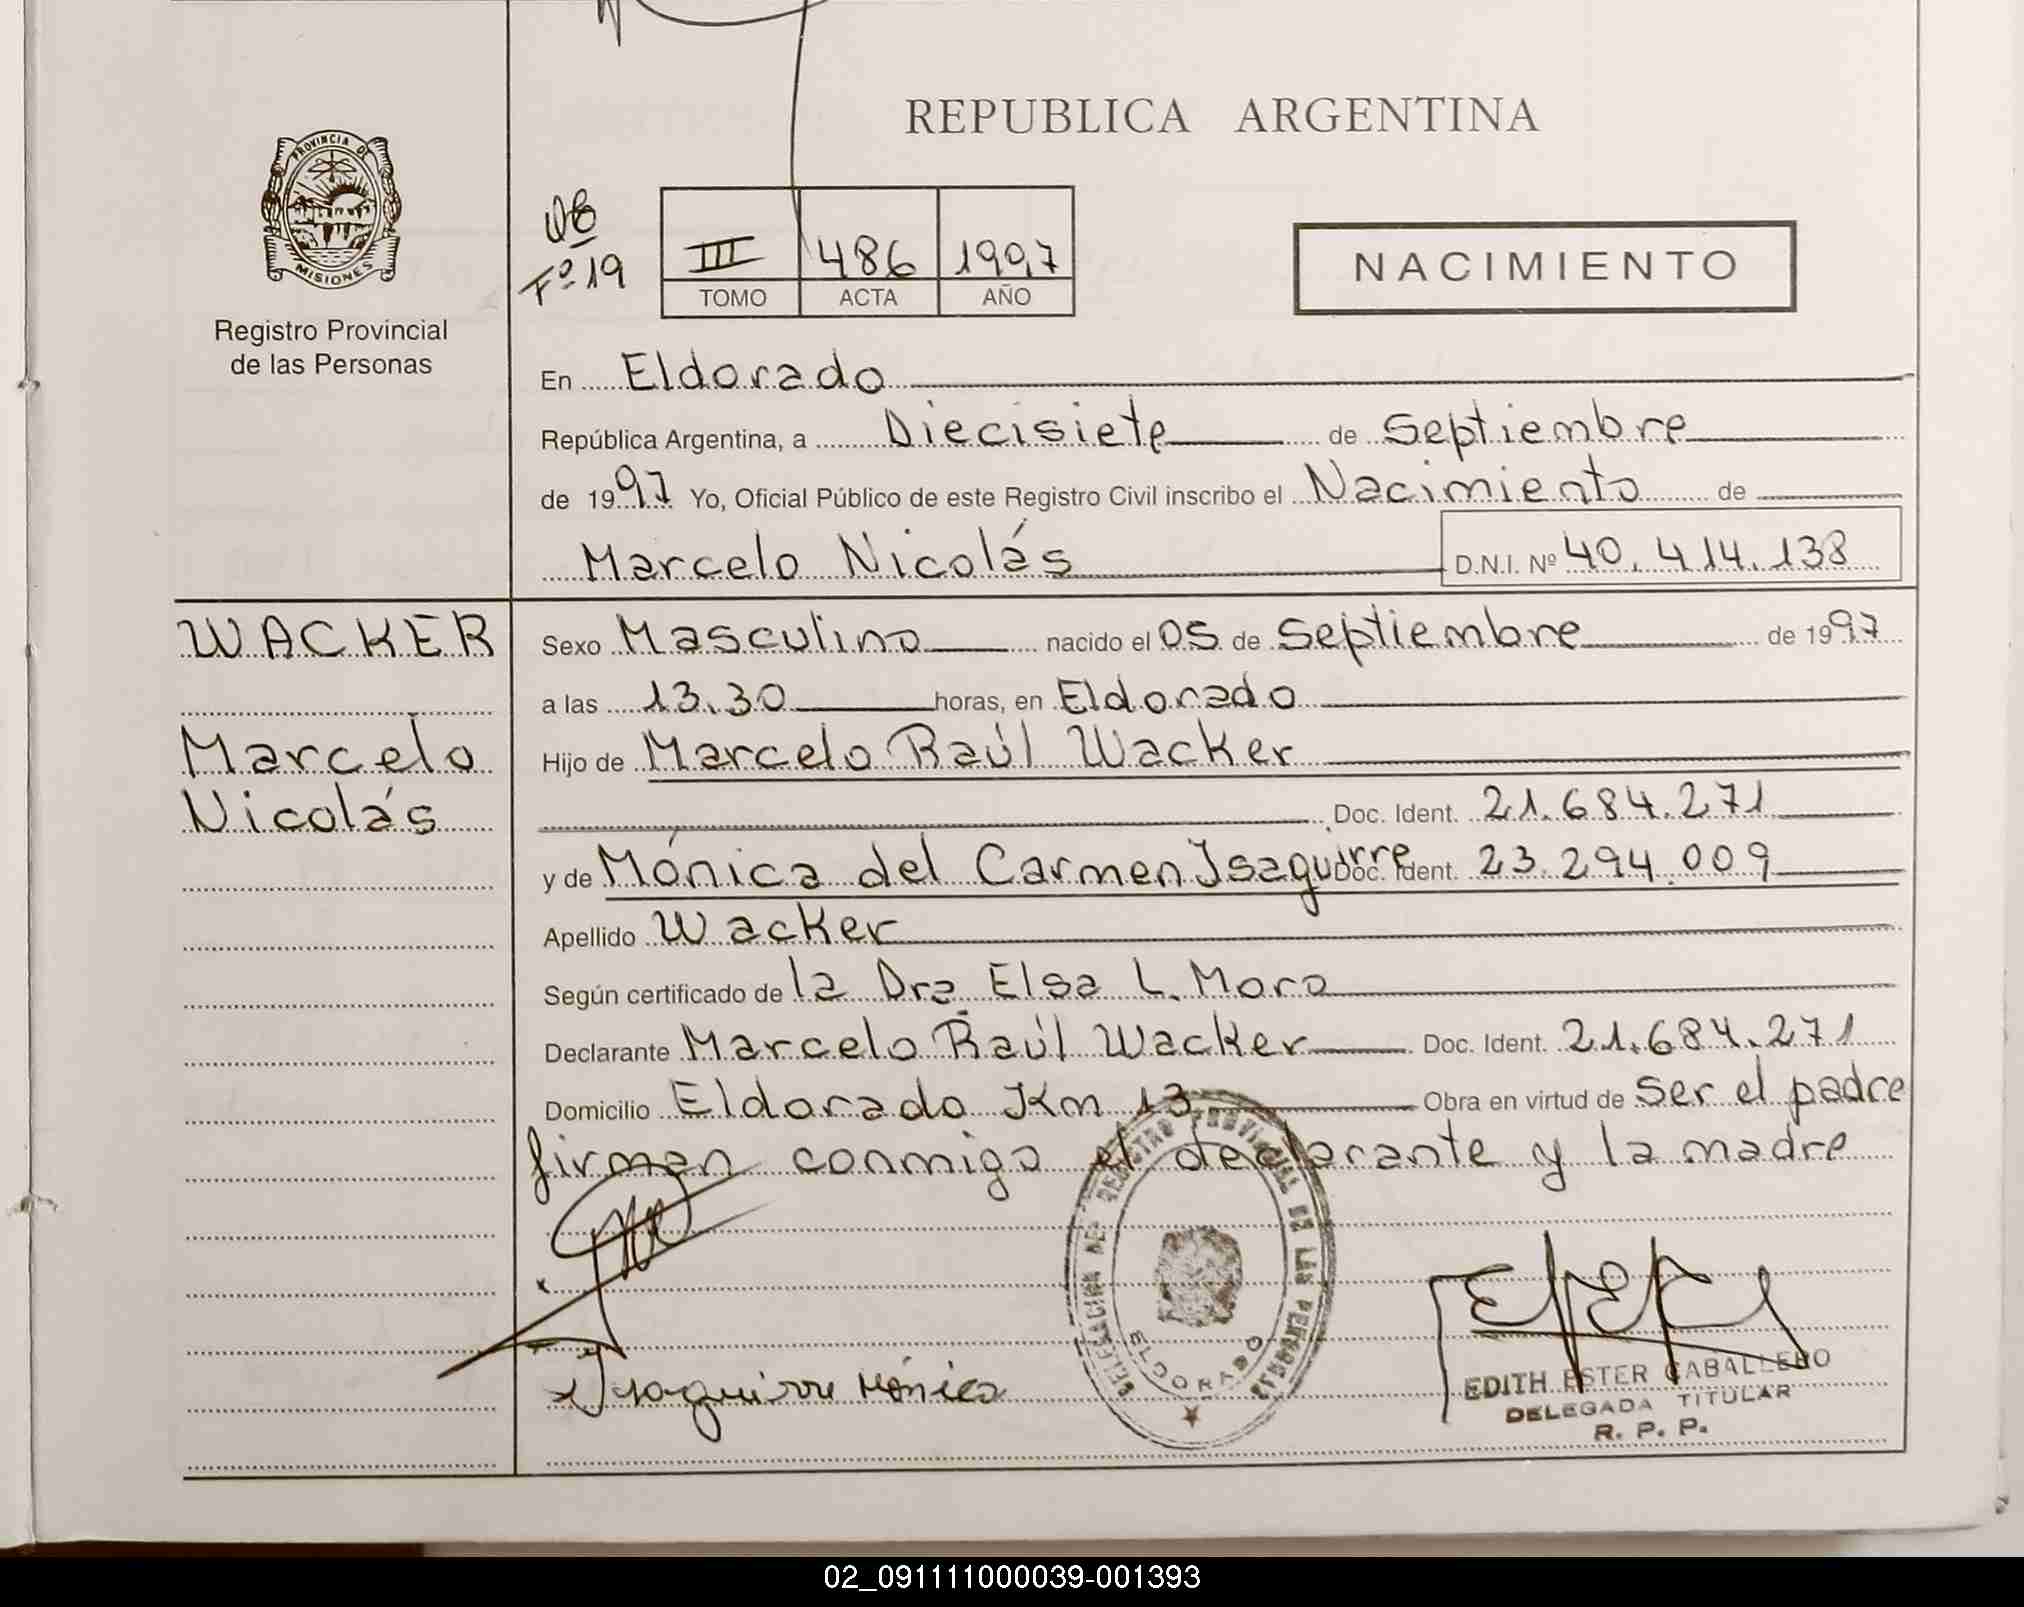 REPUBLICA ARGENTINA
PROVINCIA DE
MISIONES
Registro Provincial
de las Personas
Fº 19
III 486 1997
TOMO ACTA AÑO
NACIMIENTO
En Eldorado
República Argentina, a Diecisiete de Septiembre
de 1997 Yo, Oficial Público de este Registro Civil inscribo el Nacimiento de
Marcelo Nicolás D.N.I. Nº 40.414.138
WACKER
Marcelo
Nicolás
Sexo Masculino nacido el 05 de Septiembre de 1997
a las 13.30 horas, en Eldorado
Hijo de Marcelo Raúl Wacker
Doc. Ident. 21.684.271
y de Mónica del Carmen Isaguirre Doc. Ident. 23.294.009
Apellido Wacker
Según certificado de la Dra Elsa L. Moro
Declarante Marcelo Raúl Wacker Doc. Ident. 21.684.271
Domicilio Eldorado Km 13 Obra en virtud de ser el padre
firman conmigo el declarante y la madre
DELEGACION DEL REGISTRO PROVINCIAL DE LAS PERSONAS
ELDORADO
Isaguirre Mónica
EDITH ESTER CABALLERO
DELEGADA TITULAR
R. P. P.
02_091111000039-001393